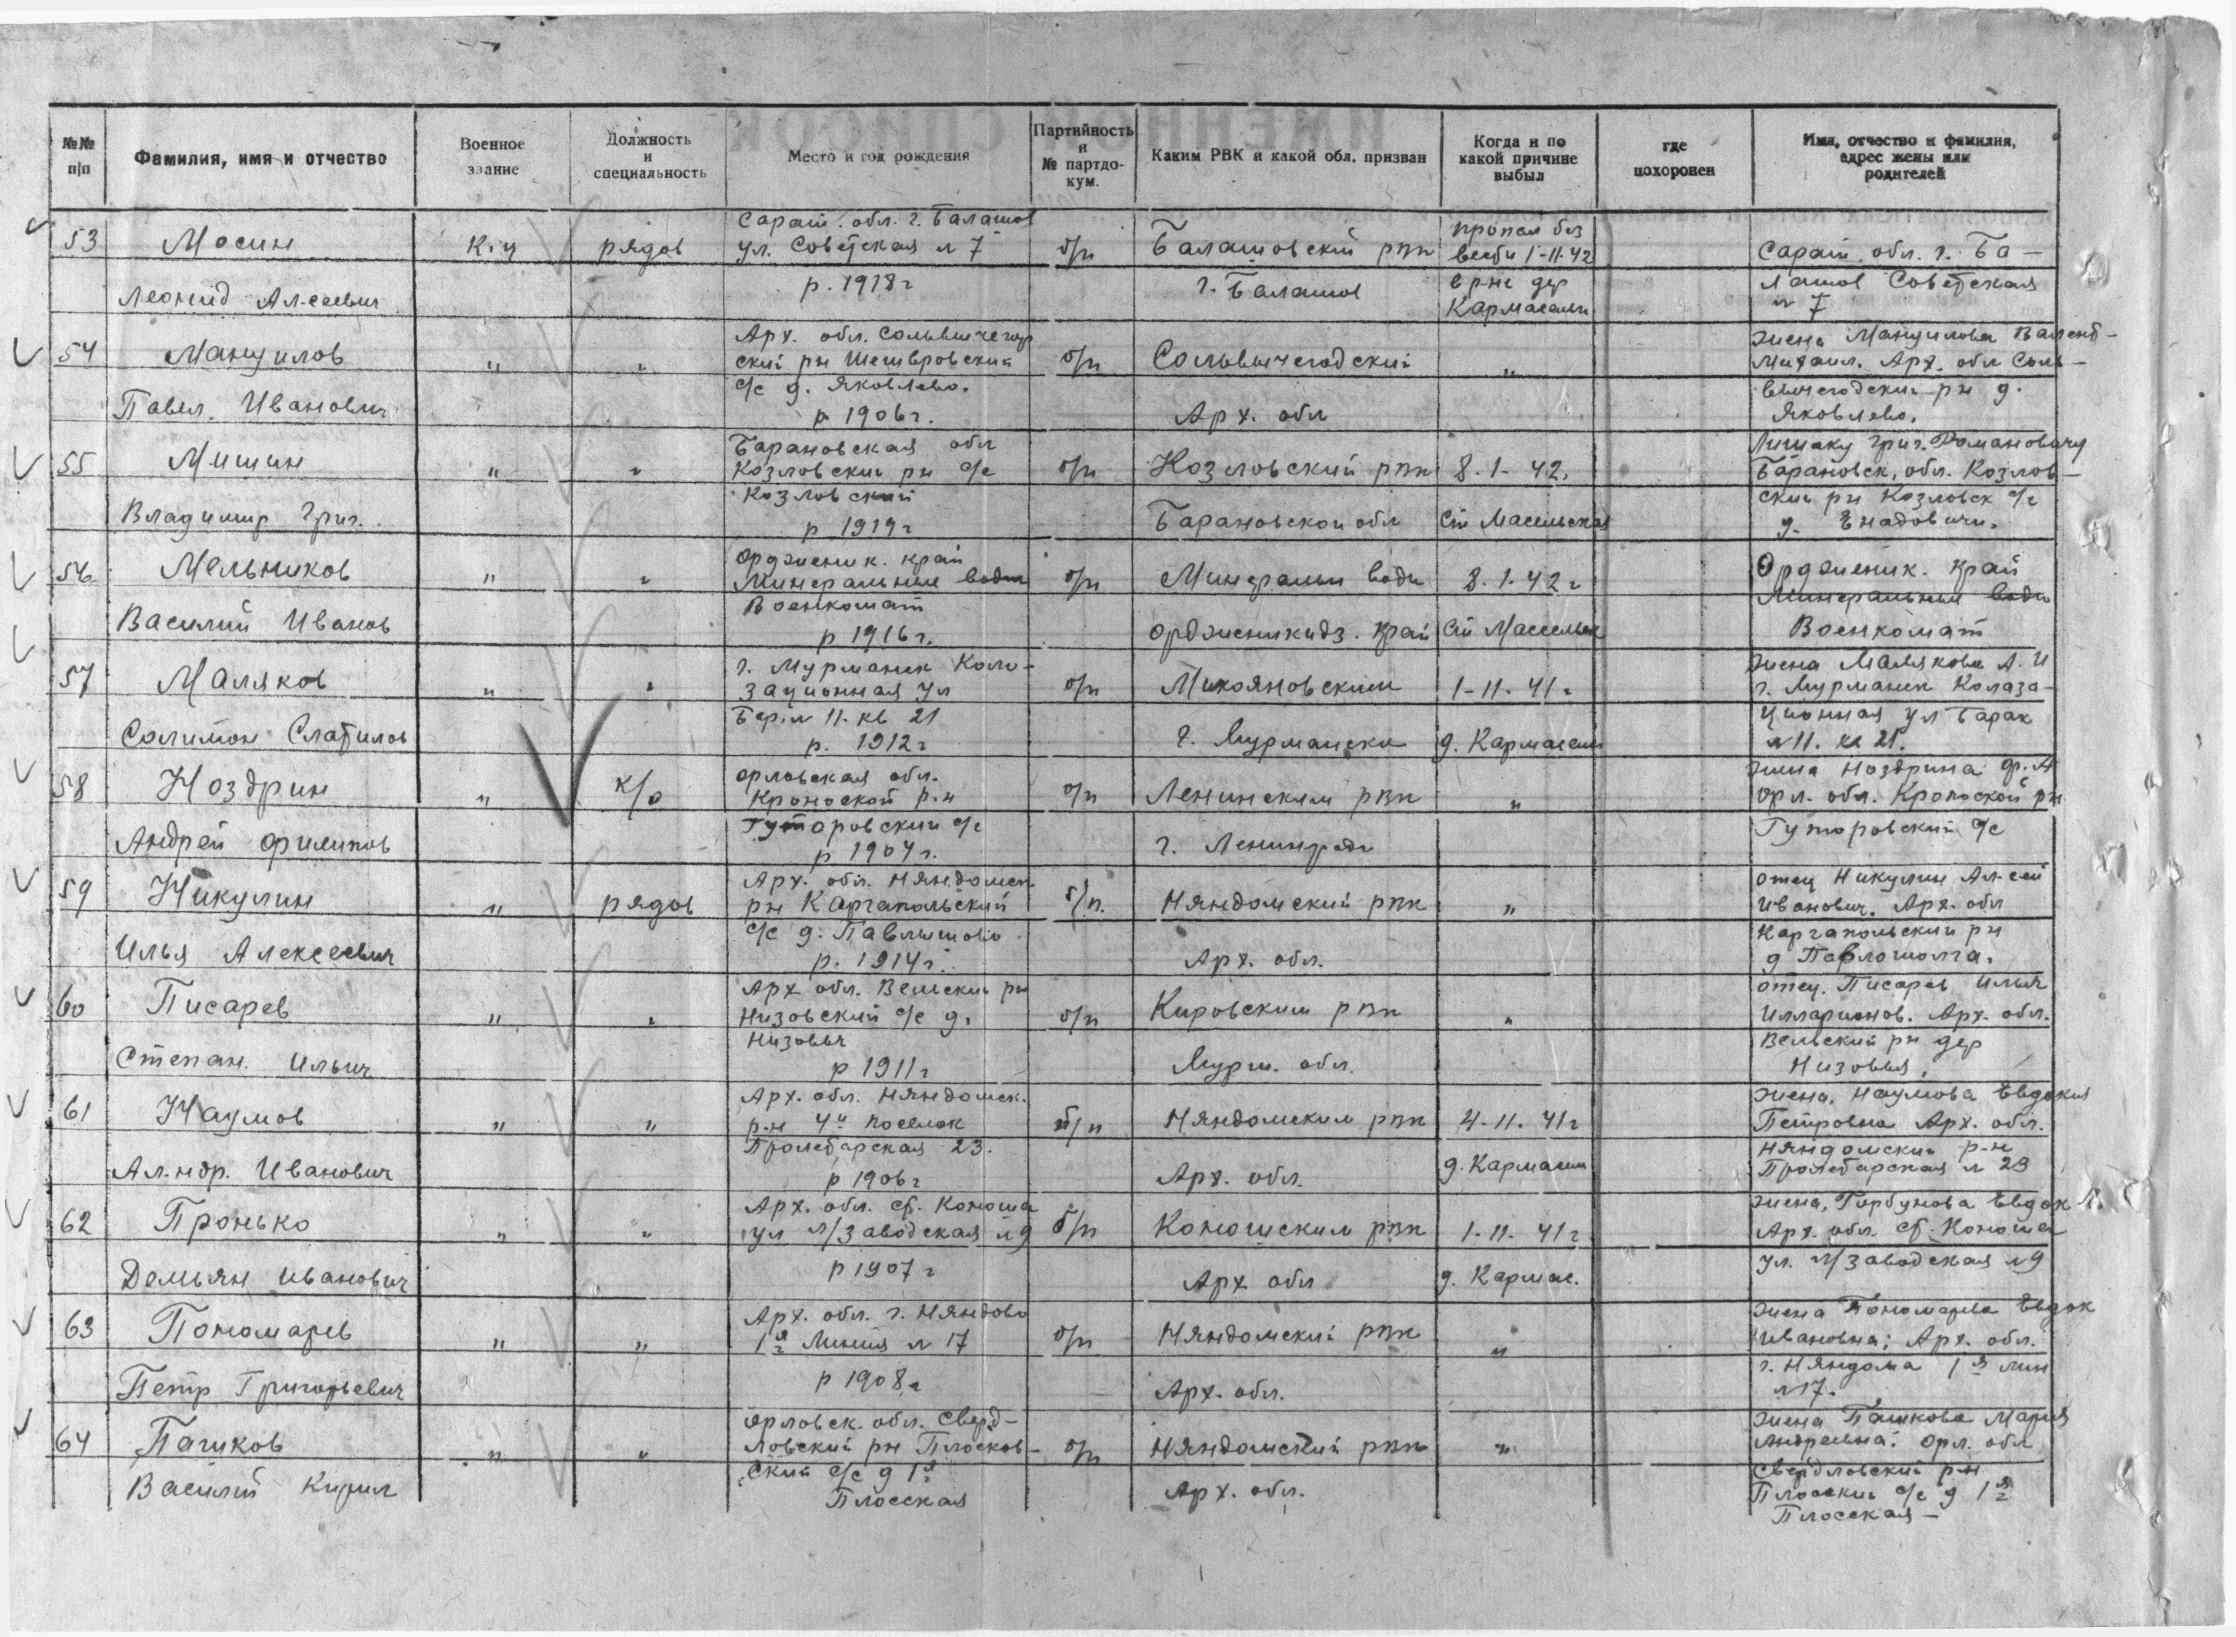 №№ п/п
Фамилия, имя и отчество
Военное звание
Должность и специальность
Место и год рождения
Партийность и № партдо-кум.
Каким РВК и какой обл. призван
Когда и по какой причине выбыл
где похоронен
Имя, отчество и фамилия, адрес жены или родителей
53 Мосин
Леонид Ал-сеевич
К-ц
рядов
Сарат. обл. г. Балашов
ул. Советская № 7
р. 1918 г
б/п
Балашовский рвк
г. Балашов
пропал без
вести 1-11-42
в р-не дер
Сарат. обл. г. Ба-
лашов Советская
№ 7
54 Мануилов
Павел Иванович
" "
Арх. обл. Сольвычегод
ский рн
с/с д. Яковлево.
р 1906 г.
б/п
Сольвычегодский
Арх. обл
"
жена Мануилова
Михаил. Арх. обл Соль-
вычегодский рн д.
Яковлево.
55 Мишин
Владимир Григ.
" "
Барановская обл
Козловский рн с/с
Козловский
р 1919 г
б/п
Козловский рвк
Барановской обл
8. 1- 42.
Ст Масельская
Григ. Романовичу
Барановск, обл. Козлов-
ский рн Козловск с/с
д.
56 Мельников
Василий Иванов
" "
Орджоник. край
Минеральные воды
Военкомат
р 1916 г.
б/п
Минеральн воды
Орджоникидз. край
8. 1. 42 г
Ст Массельск
Орджоник. край
Минеральные воды
Военкомат
57 Маляков
Солимон
" "
г. Мурманск Коло-
зационная ул
Бар. № 11. кв 21
р. 1912 г
б/п
Микояновским
г. Мурманска
1-11. 41 г
жена Малякова А. И
г. Мурманск Колаза-
ционная ул Барак
№ 11. кв 21.
58 Ноздрин
Андрей Филипов
"
к/о
Орловская обл.
Кромской р-н
Гуторовский с/с
р 1904 г.
б/п
Ленинским рвк
г. Ленинграда
"
жена Ноздрина
Орл. обл. рн
Гуторовский с/с
59 Никулин
Илья Алексеевич
"
рядов
Арх. обл. Няндомск
рн Каргапольский
с/с д.
р. 1914 г.
б/п.
Няндомский рвк
Арх. обл.
"
отец Никулин Ал-сей
Иванович. Арх. обл
Каргапольский рн
д
60 Писарев
Степан Ильич
" "
Арх обл. Вельский рн
Низовский с/с д.
Низовья
р 1911 г
б/п
Кировским рвк
Мурм. обл.
"
отец. Писарев Илья
Илларионов. Арх. обл.
Вельский рн дер
Низовья.
61 Наумов
Ал-ндр. Иванович
" "
Арх. обл. Няндомск.
р-н 4й поселок
Пролетарская 23.
р 1906 г
б/п
Няндомским рвк
Арх. обл.
4-11. 41 г
жена, Наумова Евдокия
Петровна Арх. обл.
Няндомский р-н
Пролетарская № 23
62 Пронько
Демьян Иванович
" "
Арх. обл. ст. Коноша
ул л/заводская № 9
р 1907 г
б/п
Коношским рвк
Арх обл
1-11- 41 г
д. Кармас.
жена, Горбунова Евдок
Арх. обл. ст. Коноша
ул. л/заводская № 9
63 Пономарев
Петр Григорьевич
" "
Арх. обл. г. Няндома
1я Линия № 17
р 1908 г
б/п
Няндомский рвк
Арх. обл.
"
жена Пономарева Евдок
Ивановна; Арх. обл.
г. Няндома 1я лин
№ 17.
64 Пашков
Василий Кирил
" "
Орловск. обл. Сверд-
ловский рн Плосков-
ский с/с д 1я
Плосская
б/п
Няндомский рвк
Арх. обл.
"
жена Пашкова Мария
Андреевна. Орл. обл
Свердловский р-н
Плосский с/с д 1я
Плосская -